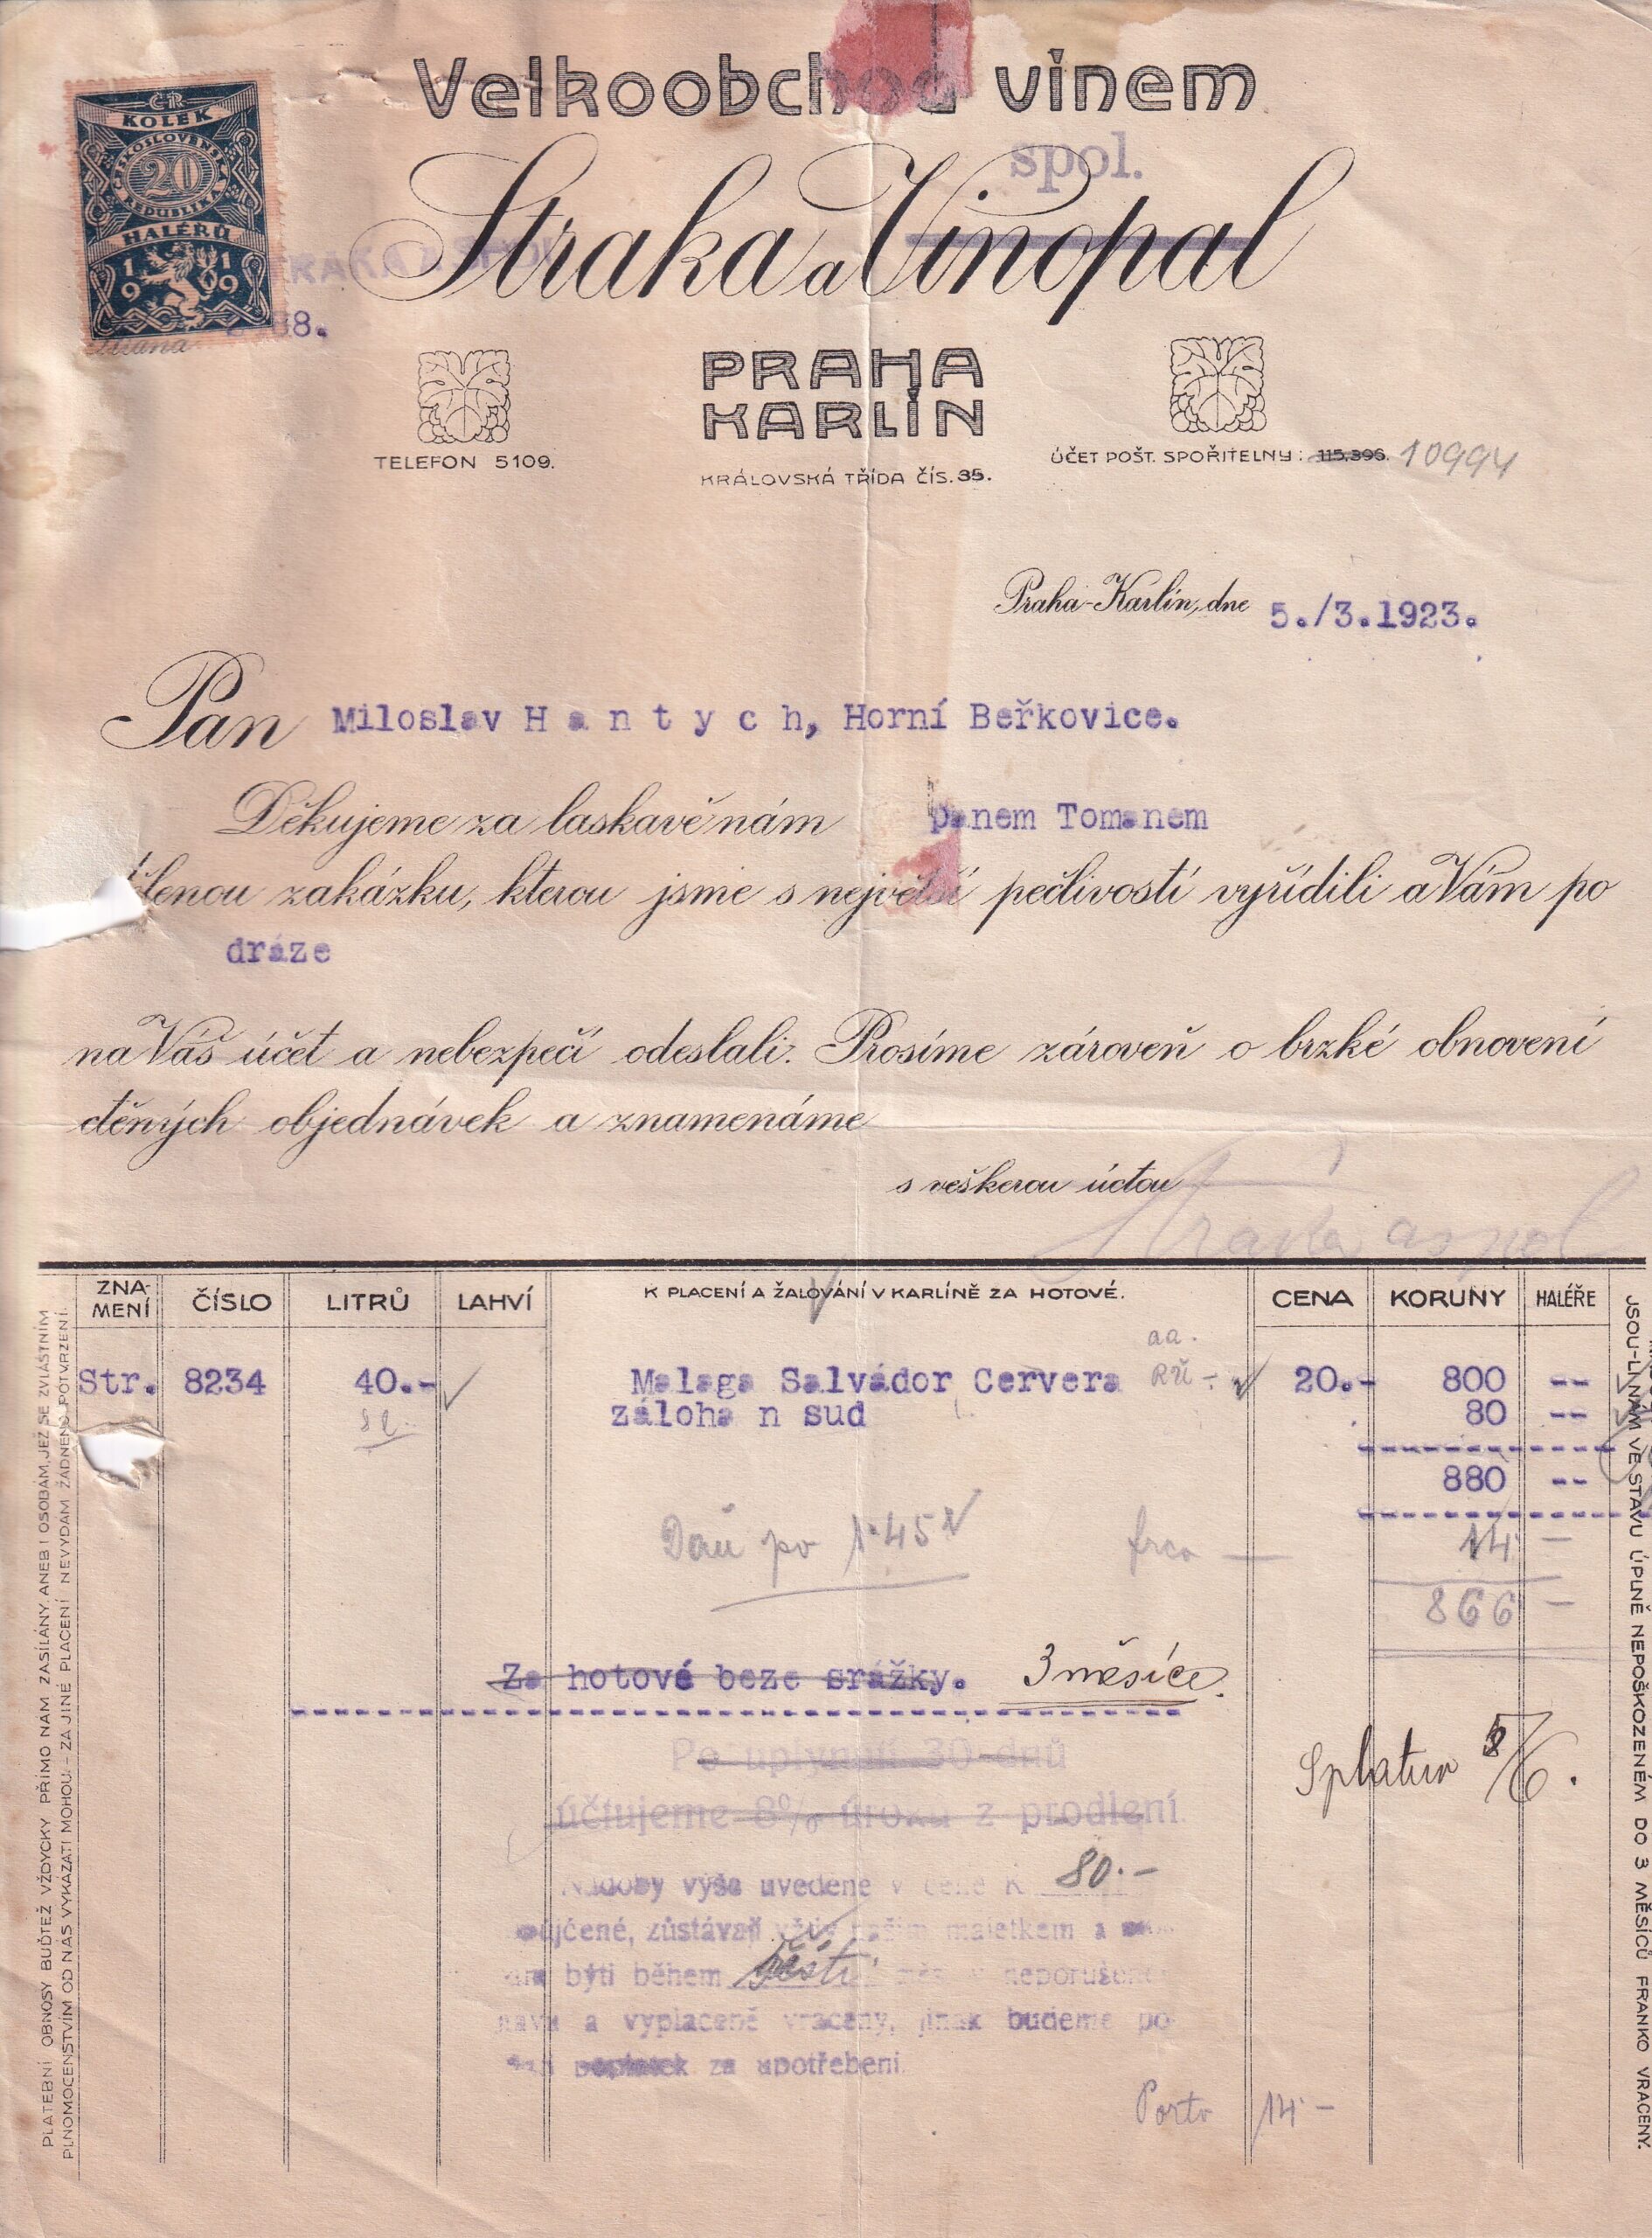 Velkoobchod vinem
spol.
Straka a Vinopal
ČR
KOLEK
ČESKOSLOVENSKÁ
20
REPUBLIKA
HALÉŘŮ
1919
8.
PRAHA
KARLÍN
TELEFON 5109.
KRÁLOVSKÁ TŘÍDA ČÍS. 35.
ÚČET POŠT. SPOŘITELNY: 115.396. 10994
Praha-Karlín, dne 5./3.1923.
Pan Miloslav H a n t y c h, Horní Beřkovice.
Děkujeme za laskavě nám panem Tomanem
lenou zakázku, kterou jsme s největší pečlivostí vyřídili a Vám po
dráze
na Váš účet a nebezpečí odeslali. Prosíme zároveň o brzké obnovení
ctěných objednávek a znamenáme
s veškerou úctou
Straka a spol
ZNA-
MENÍ
ČÍSLO LITRŮ LAHVÍ K PLACENÍ A ŽALOVÁNÍ V KARLÍNĚ ZA HOTOVÉ. CENA KORUNY HALÉŘE
Str. 8234 40.- Malaga Salvádor Cervera 20.- 800 --
záloha n sud 80 --
880 --
Daň po 1·45 frco 14 —
866 —
Za hotové beze srážky. 3 měsíce.
Po uplynutí 30 dnů
účtujeme 8% úroku z prodlení
Splatno 5/6.
Nádoby výše uvedené v ceně K 80.-
půjčené, zůstávají vždy naším majetkem a
býti během šesti neporušené
a vyplaceně vráceny, jinak budeme po-
za upotřebení.
Porto 14 -
PLATEBNÍ OBNOSY BUĎTEŽ VŽDYCKY PŘÍMO NÁM ZASÍLÁNY, ANEB I OSOBÁM, JEŽ SE ZVLÁŠTNÍM
PLNOMOCENSTVÍM OD NÁS VYKÁZATI MOHOU – ZA JINÉ PLACENÍ NEVYDÁM ŽÁDNÉHO POTVRZENÍ.
JSOU-LI NÁM VE STAVU ÚPLNĚ NEPOŠKOZENÉM DO 3 MĚSÍCŮ FRANKO VRÁCENY.